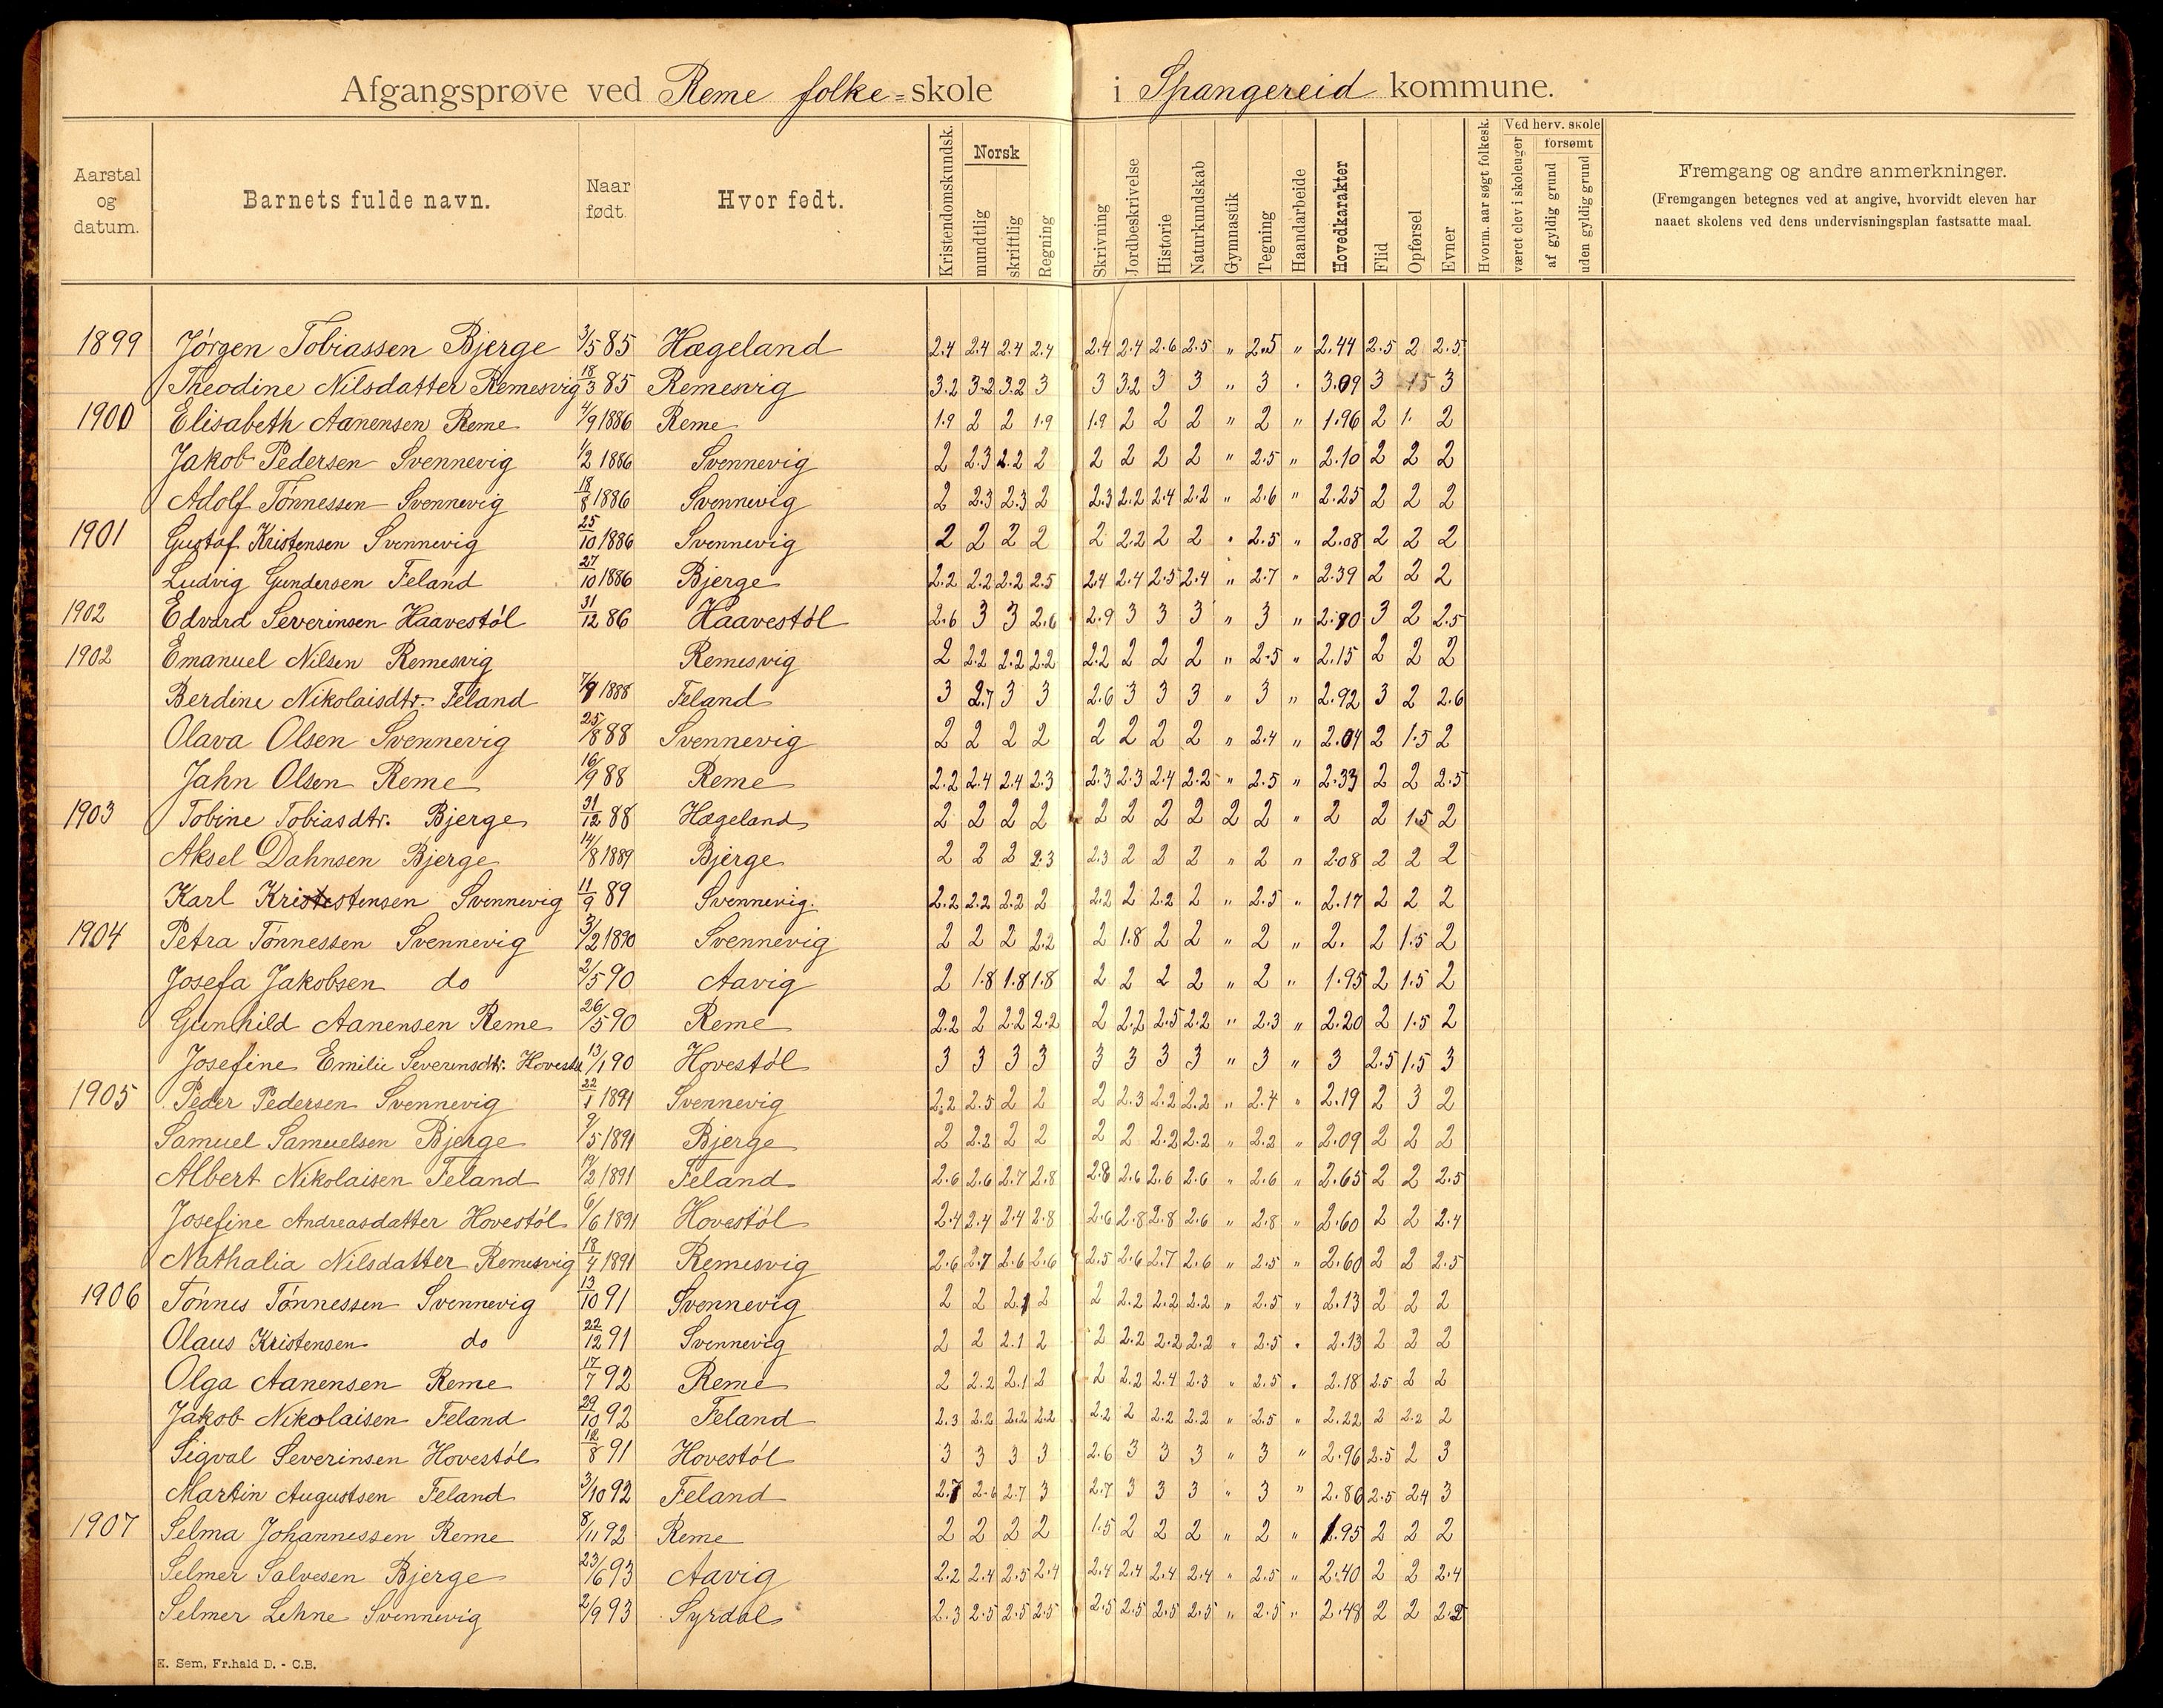 Afgangsprøve ved Reme folke=skole i Spangereid kommune.
Aarstal og datum. Barnets fulde navn. Naar født. Hvor født. Kristendomskundsk. Norsk mundtlig skriftlig Regning Skrivning Jordbeskrivelse Historie Naturkundskab Gymnastik Tegning Haandarbeide Hovedkarakter Flid Opførsel Evner Hvorm. aar søgt folkesk. Ved herv. skole været elev i skoleuger forsømt af gyldig grund uden gyldig grund Fremgang og andre anmerkninger.
(Fremgangen betegnes ved at angive, hvorvidt eleven har
naaet skolens ved dens undervisningsplan fastsatte maal.
1899 Jørgen Tobiassen Bjerge 3/5 85 Hægeland 2.4 2.4 2.4 2.4 2.4 2.4 2.6 2.5 " 2.5 " 2.44 2.5 2 2.5
Theodine Nilsdatter Remesvig 18/3 85 Remesvig 3.2 3.2 3.2 3 3 3.2 3 3 " 3 " 3.09 3 1.5 3
1900 Elisabeth Aanensen Reme 4/9 1886 Reme 1.9 2 2 1.9 1.9 2 2 2 " 2 " 1.96 2 1. 2
Jakob Pedersen Svennevig 1/2 1886 Svennevig 2 2.3 2.2 2 2 2 2 2 " 2.5 " 2.10 2 2 2
Adolf Tønnessen Svennevig 18/8 1886 Svennevig 2 2.3 2.3 2 2.3 2.2 2.4 2.2 " 2.6 " 2.25 2 2 2
1901 Gustaf Kristensen Svennevig 25/10 1886 Svennevig 2 2 2 2 2 2.2 2 2 " 2.5 " 2.08 2 2 2
Ludvig Gundersen Feland 27/10 1886 Bjerge 2.2 2.2 2.2 2.5 2.4 2.4 2.5 2.4 " 2.7 " 2.39 2 2 2
1902 Edvard Severinsen Haavestøl 31/12 86 Haavestøl 2.6 3 3 2.6 2.9 3 3 3 " 3 " 2.90 3 2 2.5
1902 Emanuel Nilsen Remesvig Remesvig 2 2.2 2.2 2.2 2.2 2 2 2 " 2.5 " 2.15 2 2 2
Berdine Nikolaisdtr. Feland 7/9 1888 Feland 3 2.7 3 3 2.6 3 3 3 " 3 " 2.92 3 2 2.6
Olava Olsen Svennevig 25/8 88 Svennevig 2 2 2 2 2 2 2 2 " 2.4 " 2.04 2 1.5 2
Jahn Olsen Reme 16/9 88 Reme 2.2 2.4 2.4 2.3 2.3 2.3 2.4 2.2 " 2.5 " 2.33 2 2 2.5
1903 Tobine Tobiasdtr. Bjerge 31/12 88 Hægeland 2 2 2 2 2 2 2 2 2 2 " 2 2 1.5 2
Aksel Dahnsen Bjerge 14/8 1889 Bjerge 2 2 2 2.3 2.3 2 2 2 " 2 " 2.08 2 2 2
Karl Kristestensen Svennevig 11/9 89 Svennevig. 2.2 2.2 2.2 2 2.2 2 2.2 2 " 2.5 " 2.17 2 2 2
1904 Petra Tønnessen Svennevig 3/2 1890 Svennevig 2 2 2 2.2 2 1.8 2 2 " 2 " 2. 2 1.5 2
Josefa Jakobsen do 2/5 90 Aavig 2 1.8 1.8 1.8 2 2 2 2 " 2 " 1.95 2 1.5 2
Gunhild Aanensen Reme 26/5 90 Reme 2.2 2 2.2 2.2 2 2.2 2.5 2.2 " 2.3 " 2.20 2 1.5 2
Josefine Emilie Severinsdtr. 13/1 90 Hovestøl 3 3 3 3 3 3 3 3 " 3 " 3 2.5 1.5 3
1905 Peder Pedersen Svennevig 22/1 1891 Svennevig 2.2 2.5 2 2 2 2.3 2.2 2.2 " 2.4 " 2.19 2 3 2
Samuel Samuelsen Bjerge 9/5 1891 Bjerge 2 2.2 2 2 2 2 2.2 2.2 " 2.2 " 2.09 2 2 2
Albert Nikolaisen Feland 19/2 1891 Feland 2.6 2.6 2.7 2.8 2.8 2.6 2.6 2.6 " 2.6 " 2.65 2 2 2.5
Josefine Andreasdatter Hovestøl 6/6 1891 Hovestøl 2.4 2.4 2.4 2.8 2.6 2.8 2.8 2.6 " 2.8 " 2.60 2 2 2.4
Nathalia Nilsdatter Remesvig 18/4 1891 Remesvig 2.6 2.7 2.6 2.6 2.5 2.6 2.7 2.6 " 2.5 " 2.60 2 2 2.5
1906 Tønnes Tønnessen Svennevig 13/10 91 Svennevig 2 2 2.1 2 2 2.2 2.2 2.2 " 2.5 " 2.13 2 2 2
Olaus Kristensen do 22/12 91 Svennevig 2 2 2.1 2 2 2.2 2.2 2.2 " 2.5 " 2.13 2 2 2
Olga Aanensen Reme 17/7 92 Reme 2 2.2 2.1 2 2 2.2 2.4 2.3 " 2.5 " 2.18 2.5 2 2
Jakob Nikolaisen Feland 29/10 92 Feland 2.3 2.2 2.2 2.2 2.2 2 2.2 2.2 " 2.5 " 2.22 2 2.2 2
Sigval Severinsen Hovestøl 12/8 91 Hovestøl 3 3 3 3 2.6 3 3 3 " 3 " 2.96 2.5 2 3
Martin Augustsen Feland 3/10 92 Feland 2.7 2.6 2.7 3 2.7 3 3 3 " 3 " 2.86 2.5 2.4 3
1907 Selma Johannessen Reme 8/11 92 Reme 2 2 2 2 1.5 2 2 2 " 2 " 1.95 2 2 2
Selmer Salvesen Bjerge 23/6 93 Aavig 2.2 2.4 2.5 2.4 2.4 2.4 2.4 2.4 " 2.5 " 2.40 2 2 2.4
Selmer Lehne Svennevig 2/9 93 Syrdal 2.3 2.5 2.5 2.5 2.5 2.5 2.5 2.5 " 2.5 " 2.48 2 2 2.2
E. Sem, Fr.hald D. - C.B.